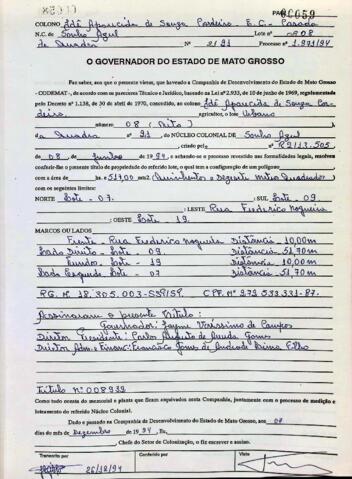 COLONO Idê Aparecida de Souza Cordeiro - E.C. - Casada
N.C. de Sonho Azul Lote nº 08
de Quadra 21 Processo nº 1.993/94
O GOVERNADOR DO ESTADO DE MATO GROSSO
Faz saber, aos que o presente virem, que havendo a Companhia de Desenvolvimento do Estado de Mato Grosso
- CODEMAT-, de acordo com os pareceres Técnico e Jurídico, baseado na Lei nº 2.933, de 10 de junho de 1969, regulamentada
pelo Decreto nº 1.138, de 30 de abril de 1970, concedido ao colono Idê Aparecida de Souza Cor-
deiro. agricultor, o lote Urbano
nº 08 (oito)
a Quadra nº 21 do NÚCLEO COLONIAL DE Sonho
Azul criado pelo nº R2113.505
de 08 de Junho de 1994, e achando-se o processo revestido das formalidades legais, resolveu
conferir-lhe o presente título de propriedade do referido lote, o qual tem a configuração de um polígono
com a área de hs. 517,00 m2. Quinhentos e Dezessete Metros Quadrados
com os seguintes limites:
NORTE Lote - 07. ; SUL Lote - 09.
; LESTE Rua Frederico Nogueira
; OESTE Lote - 19.
MARCOS OU LADOS
Frente - Rua Frederico Nogueira Distância - 10,00m
Lado Direito - Lote - 09 Distância - 51,70m
Fundo - Lote - 19 Distância - 10,00m
Lado Esquerdo - Lote - 07 Distância - 51,70m
RG. Nº 18.305.003-SSP/SP. CPF. Nº 273.533.331-87.
Assinaram o presente Título:
Governador: Jayme Veríssimo de Campos
Diretor Presidente: Carlos Augusto de Gomes
Diretor Adm. e Financ: Francisco Gomes de Andrade Lima Filho
Título Nº 008939
Como tudo consta do memorial e planta que ficam arquivados nesta Companhia, juntamente com o processo de medição e
loteamento do referido Núcleo Colonial.
Dado e passado na Companhia de Desenvolvimento do Estado de Mato Grosso, aos 07
dias do mês de Dezembro de 1994, Eu,
Chefe do Setor de Colonização, o fiz escrever e assino.
Transcrito por Conferido por Visto
26/12/94